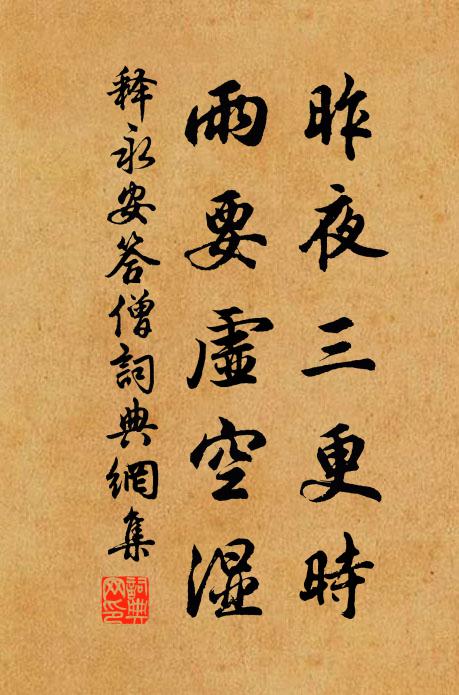 昨夜三更時
雨要虛空濕
释永安答僧詞典網集
詞典
网印